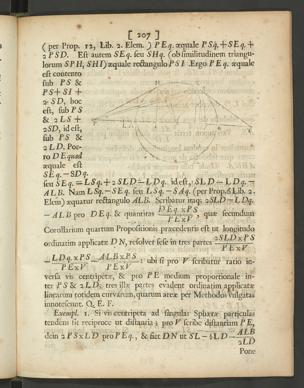 [ 207 ]
(per Prop. 12, Lib. 2. Elem.) PEq. æquale PSq+SEq.+
2PSD. Est autem SEq. seu SHq. (ob similitudinem triangu-
lorum SPH, SHI) æquale rectangulo PSI. Ergo PEq. æquale
est contento
sub PS &
PS+SI+
2SD, hoc
est, sub PS
& 2LS+
2SD, id est,
sub PS &
2LD. Por-
ro DEquad
æquale est
SEq.—SDq.
seu SEq.—LSq.+2SLD—LDq. id est, 2SLD—LDq.—
ALB. Nam LSq.—SEq. seu LSq.—SAq. (per Prop. 6 Lib. 2.
Elem.) æquatur rectangulo ALB. Scribatur itaq; 2SLD—LDq.
—ALB pro DEq. & quantitas DEq×PS / PE×V, quæ secundum
Corollarium quartum Propositionis præcedentis est ut longitudo
ordinatim applicatæ DN, resolvet sese in tres partes 2SLD×PS / PE×V
— LDq.×PS / PE×V — ALB×PS / PE×V : ubi si pro V scribatur ratio in-
versa vis centripetæ, & pro PE medium proportionale in-
ter PS & 2LD; tres illæ partes evadent ordinatim applicatæ
linearum totidem curvarum, quarum areæ per Methodos vulgatas
innotescunt. Q. E. F.
Exempl. 1. Si vis centripeta ad singulas Sphæræ particulas
tendens sit reciproce ut distantia; pro V scribe distantiam PE,
dein 2PS×LD pro PEq., & fiet DN ut SL—½LD— ALB / 2LD
Pone